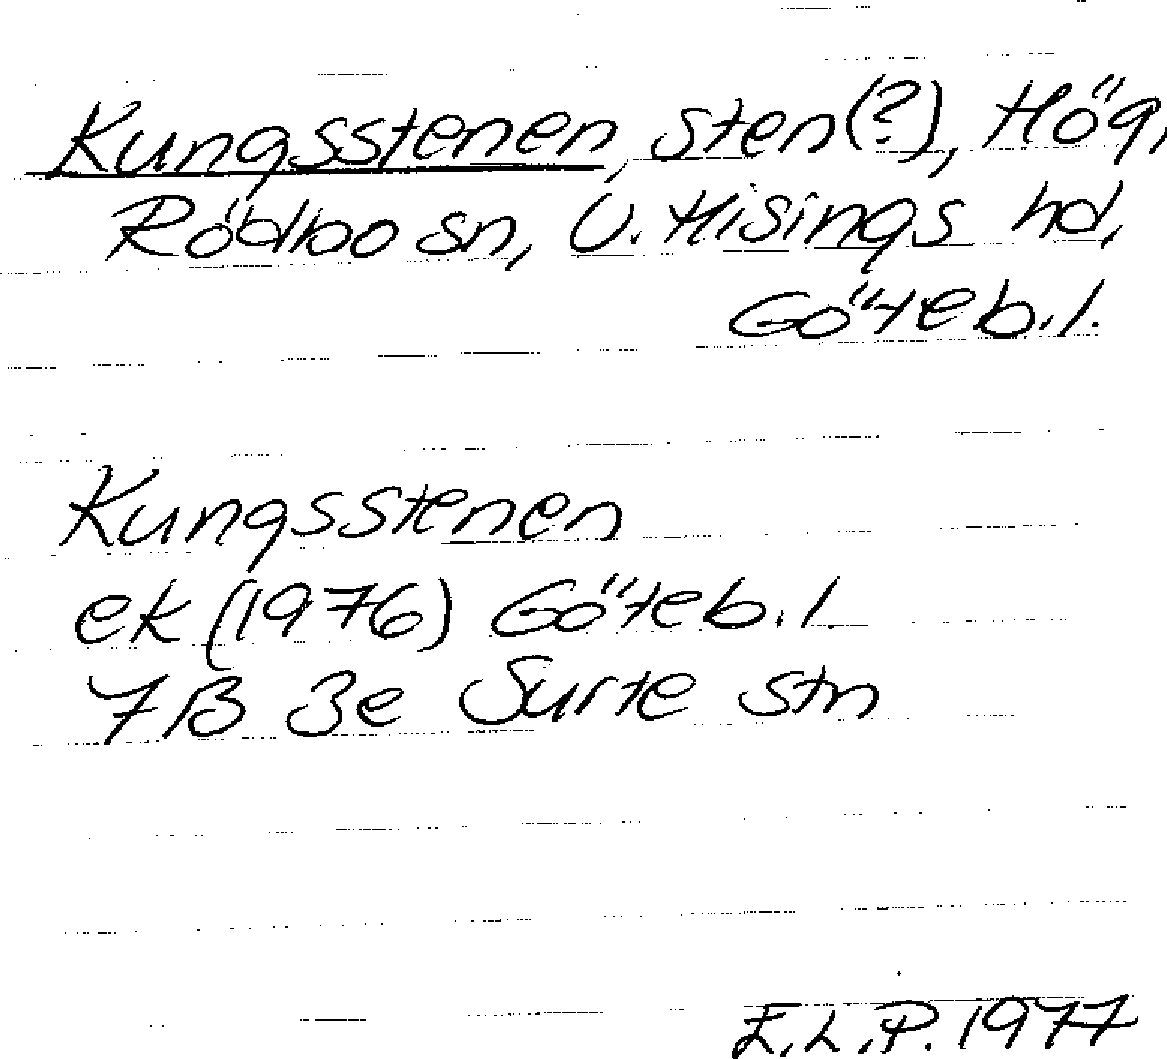 Kungsstenen, sten(?), Hög,
Rödbo sn, V. Hisings hd,
Göteb. l.
Kungsstenen
ek (1976) Göteb. l.
7B 3e Surte stn
E.L.P. 1977